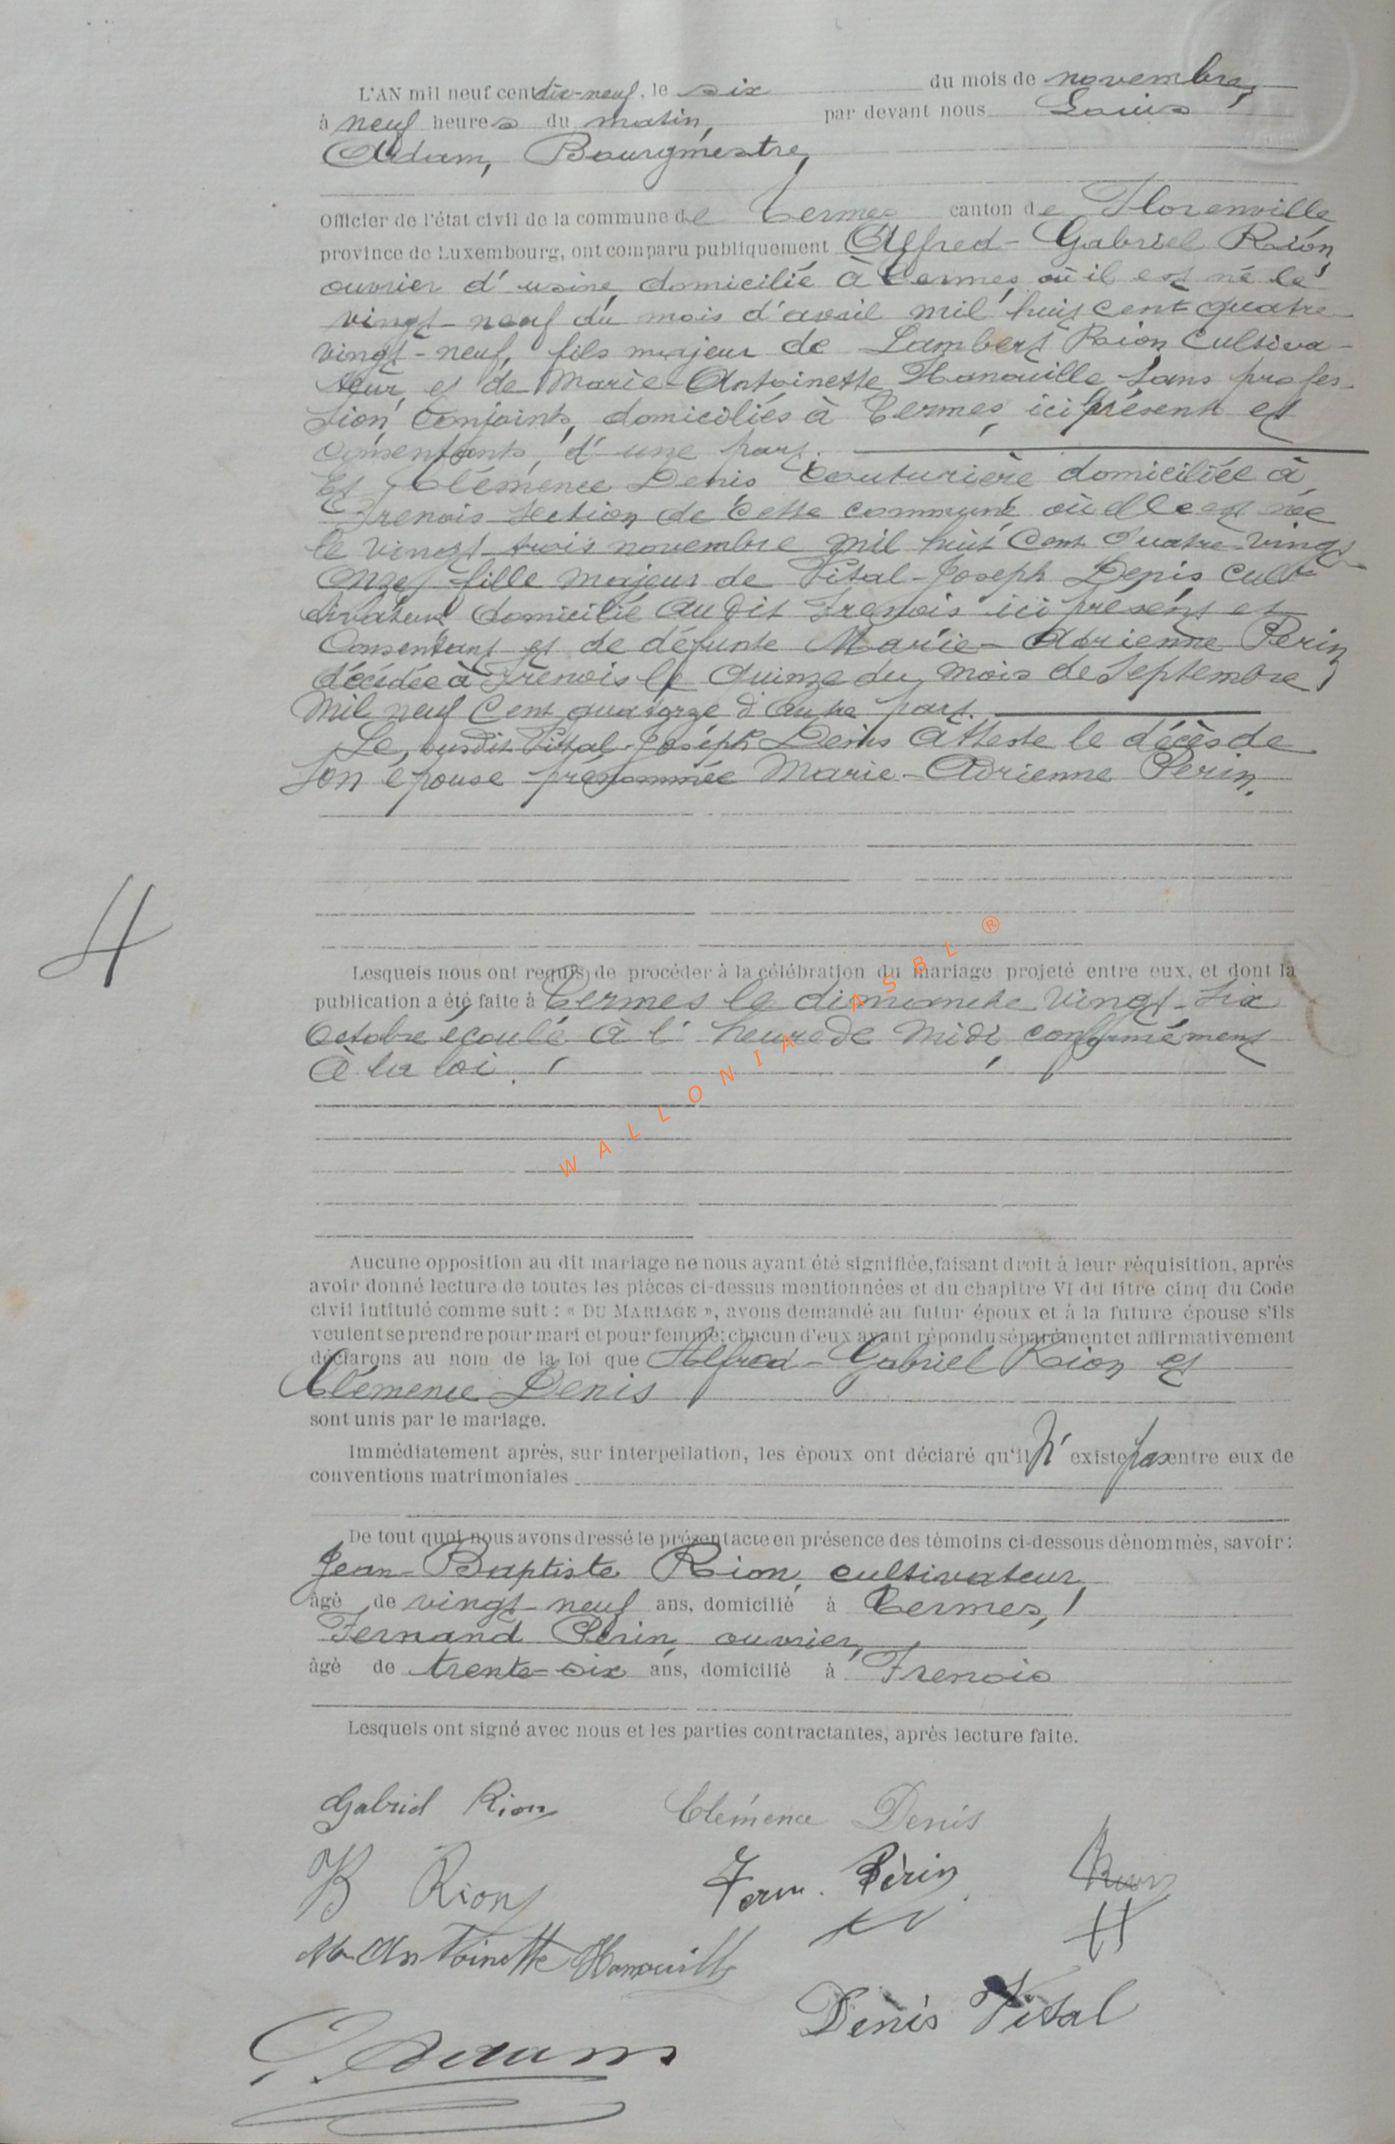 L'AN mil neuf cent dix-neuf, le six du mois de novembre,
à neuf heures du matin, par devant nous Louis
Adam, Bourgmestre,
Officier de l'état civil de la commune de Termes canton de Florenville
province de Luxembourg, ont comparu publiquement Alfred-Gabriel Rion,
ouvrier d'usine, domicilié à Termes, où il est né le
vingt-neuf du mois d'avril mil huit cent quatre
vingt-neuf, fils majeur de Lambert Rion, Cultiva-
teur, et de Marie-Antoinette Hanouille, sans profes-
sion, conjoints, domiciliés à Termes, ici présents et
consentants, d'une part.
Et Clémence Denis couturière domiciliée à
Frenois section de cette commune, où elle est née
le vingt-trois novembre mil huit Cent Quatre-vingt
onze, fille majeur de Vital-Joseph Denis, cult-
tivateur domicilié au dit Frenois ici présent et
Consentant et de défunte Marie-Adrienne Perin,
décédée à Frenois le Quinze du mois de Septembre
Mil neuf Cent quatorze d'autre part.
Le susdit Vital-Joseph Denis atteste le décès de
son épouse prénommée Marie-Adrienne Perin.
4
Lesquels nous ont requis de procéder à la célébration du mariage projeté entre eux, et dont la
publication a été faite à Termes le dimanche vingt-six
octobre écoulé à l'heure de midi, conformément
à la loi.
WALLONIA ASBL ®
Aucune opposition au dit mariage ne nous ayant été signifiée, faisant droit à leur réquisition, après
avoir donné lecture de toutes les pièces ci-dessus mentionnées et du chapitre VI du titre cinq du Code
civil intitulé comme suit : « DU MARIAGE », avons demandé au futur époux et à la future épouse s'ils
veulent se prendre pour mari et pour femme; chacun d'eux ayant répondu séparément et affirmativement
déclarons au nom de la loi que Alfred-Gabriel Rion et
Clémence Denis
sont unis par le mariage.
Immédiatement après, sur interpellation, les époux ont déclaré qu'il n'existe pas entre eux de
conventions matrimoniales
De tout quoi nous avons dressé le présent acte en présence des témoins ci-dessous dénommés, savoir :
Jean-Baptiste Rion, cultivateur,
âgé de vingt-neuf ans, domicilié à Termes,
Fernand Périn, ouvrier,
âgé de trente-six ans, domicilié à Frenois
Lesquels ont signé avec nous et les parties contractantes, après lecture faite.
Gabriel Rion Clémence Denis
JB Rion Fern. Périn
M Antoinette Hanouille
Denis Vital
L Adam